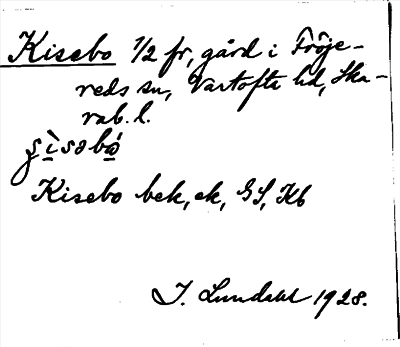 Kisebo 1/2 fr, gård i Fröje-
reds sn, Vartofta hd, Ska-
rab. l.
Kisebo bek, ek, GS, Kb
J. Lundahl 1928.